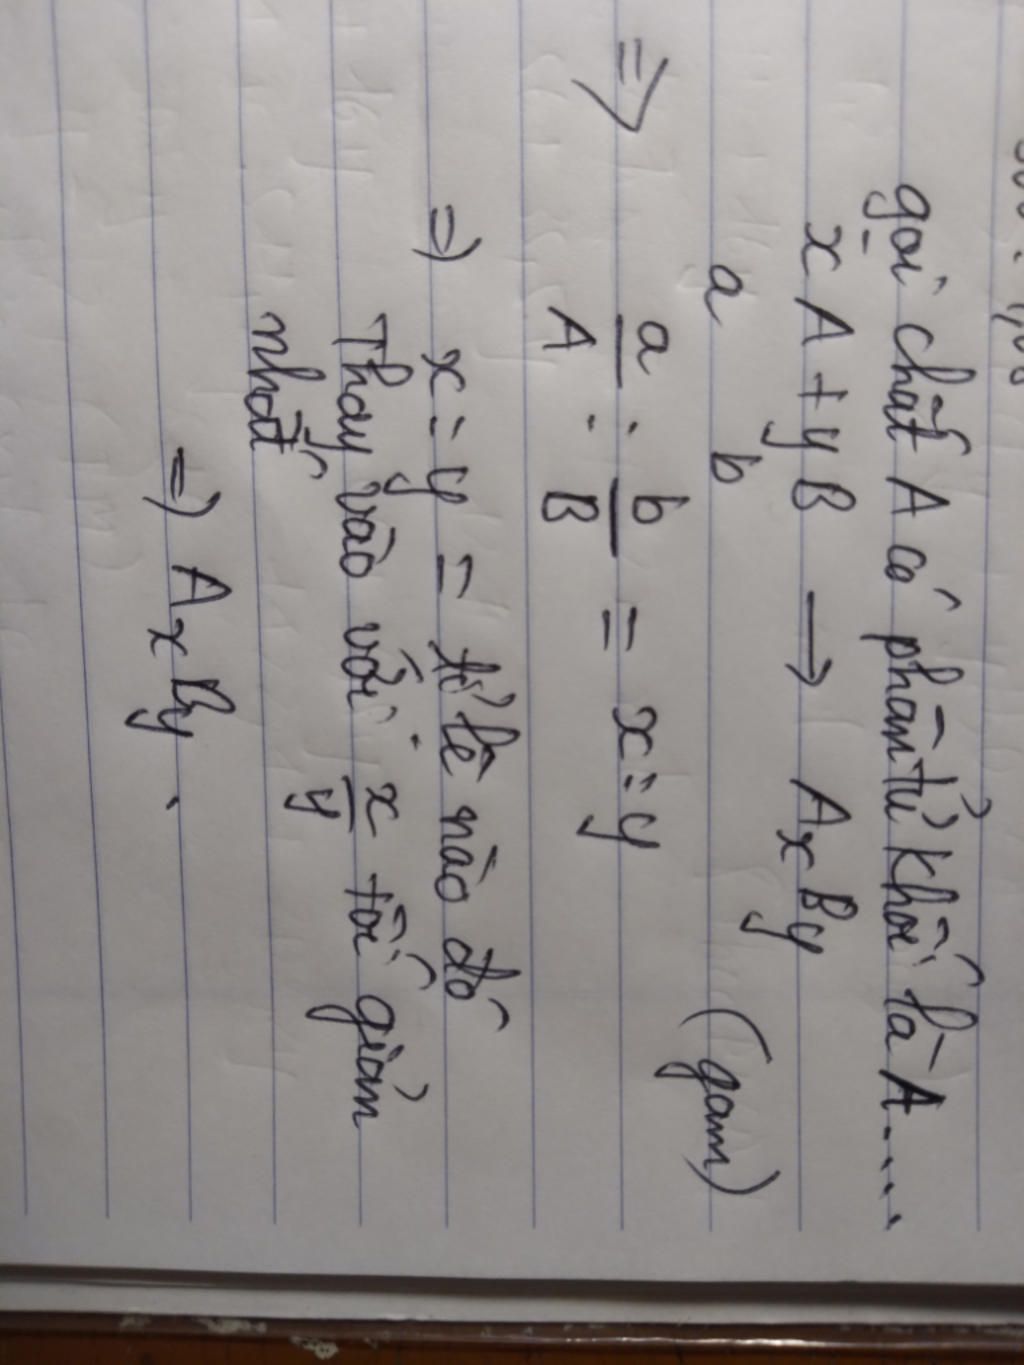 gọi chất A có phân tử khối là A....
xA + yB → AxBy
a b (gam)
=> a/A : b/B = x:y
=> x:y = tỉ lệ nào đó
Thay vào với x/y tối giản
nhất
=> AxBy.